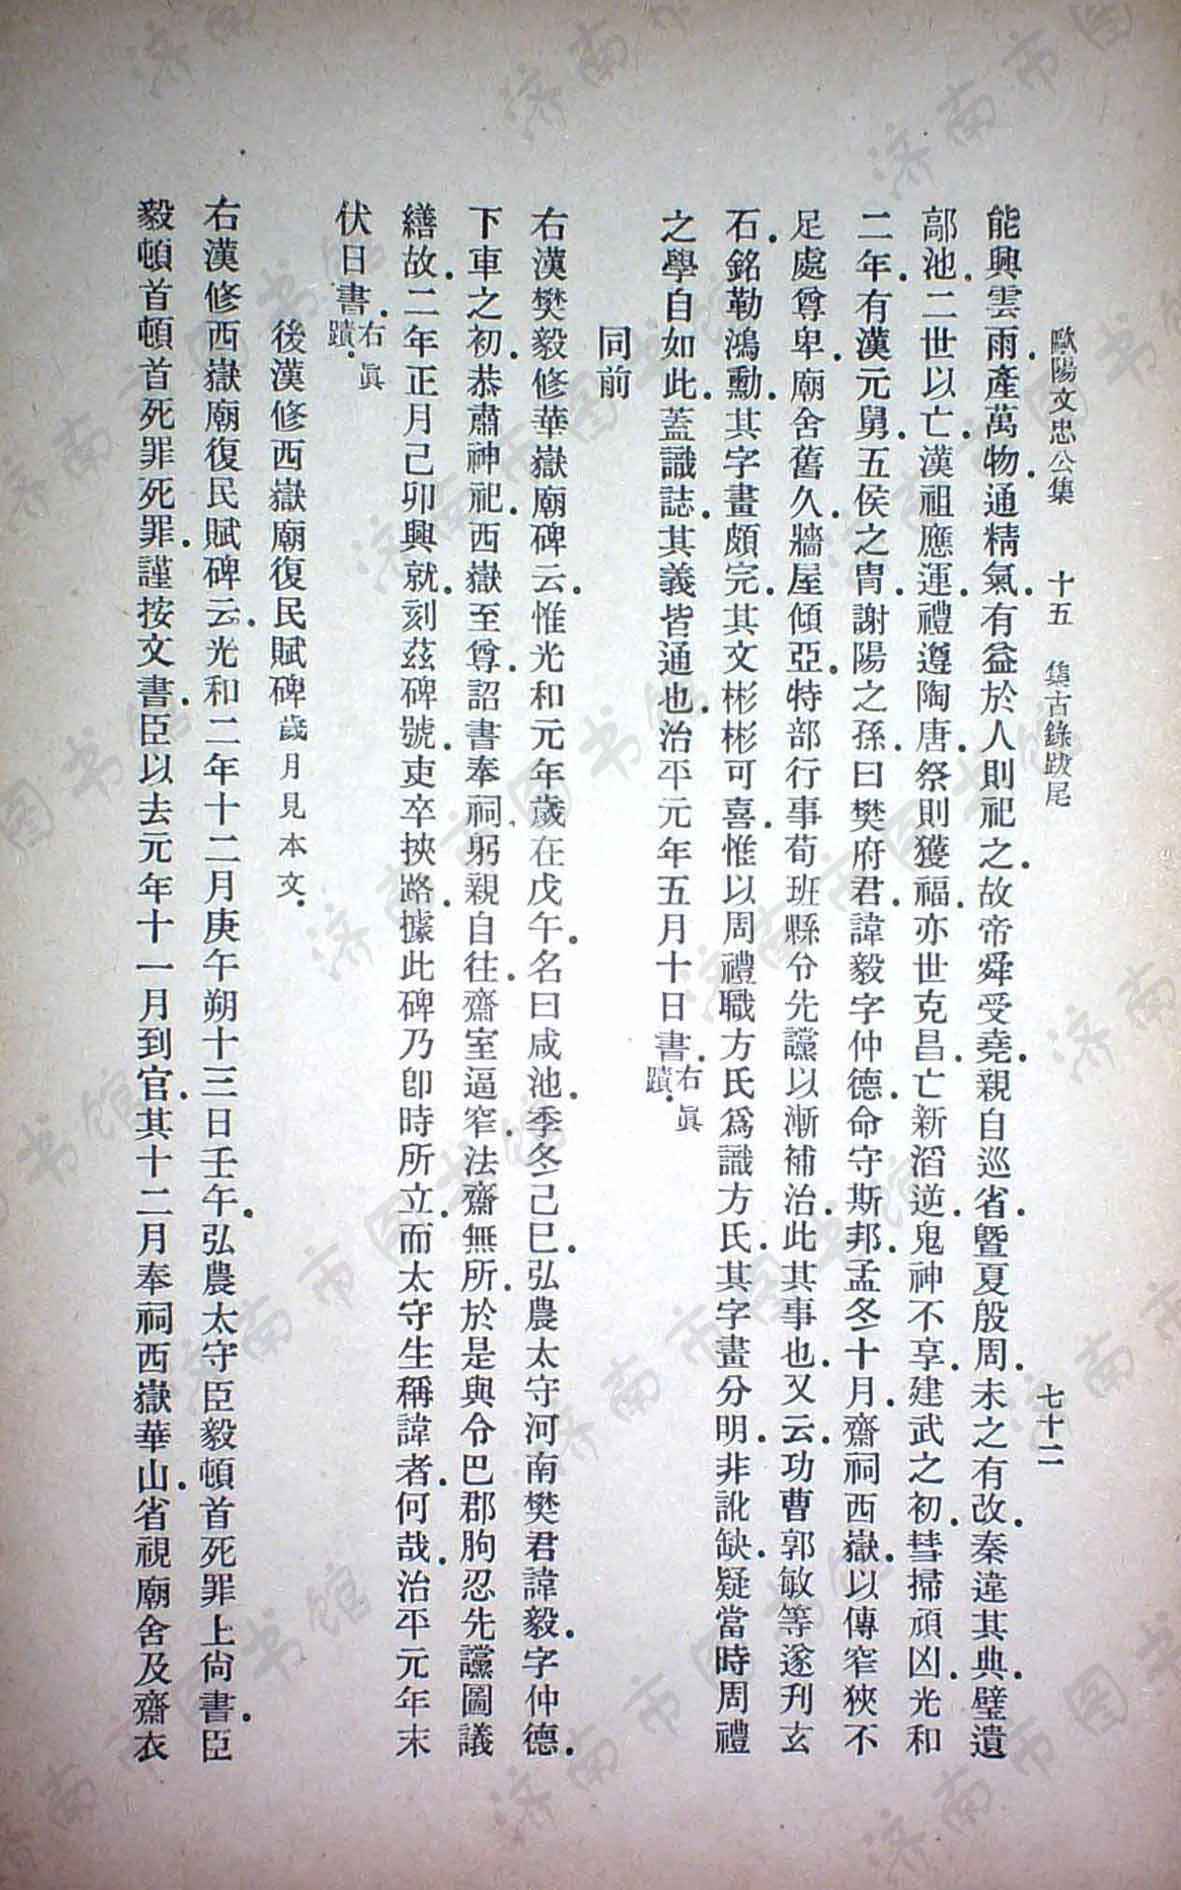 歐陽文忠公集　十五　集古錄跋尾　七十二
能興雲雨．產萬物．通精氣．有益於人則祀之．故帝舜受堯．親自巡省．曁夏殷周．未之有改．秦違其典．璧遺
鄗池．二世以亡．漢祖應運．禮遵陶唐．祭則獲福．亦世克昌．亡新滔逆．鬼神不享．建武之初．彗掃頑凶．光和
二年．有漢元舅．五侯之胄．謝陽之孫．曰樊府君．諱毅字仲德．命守斯邦．孟冬十月．齋祠西嶽．以傳窄狹不
足處尊卑．廟舍舊久．牆屋傾亞．特部行事荀班縣令先讜以漸補治．此其事也．又云．功曹郭敏等遂刋玄
石．銘勒鴻勳．其字畫頗完．其文彬彬可喜．惟以周禮職方氏爲識方氏．其字畫分明．非訛缺．疑當時周禮
之學自如此．蓋識誌．其義皆通也．治平元年五月十日書．右眞蹟．
同前
右漢樊毅修華嶽廟碑云．惟光和元年歲在戊午．名曰咸池．季冬己巳．弘農太守河南樊君諱毅．字仲德．
下車之初．恭肅神祀．西嶽至尊．詔書奉祠．躬親自往．齋室逼窄．法齋無所．於是與令巴郡朐忍先讜圖議
繕故．二年正月己卯興就．刻茲碑號．吏卒挾路．據此碑乃卽時所立．而太守生稱諱者．何哉．治平元年末
伏日書．右眞蹟．
後漢修西嶽廟復民賦碑歲月見本文．
右漢修西嶽廟復民賦碑云．光和二年十二月庚午朔十三日壬午．弘農太守臣毅頓首死罪上尙書．臣
毅頓首頓首死罪死罪．謹按文書．臣以去元年十一月到官．其十二月奉祠西嶽華山．省視廟舍及齋衣